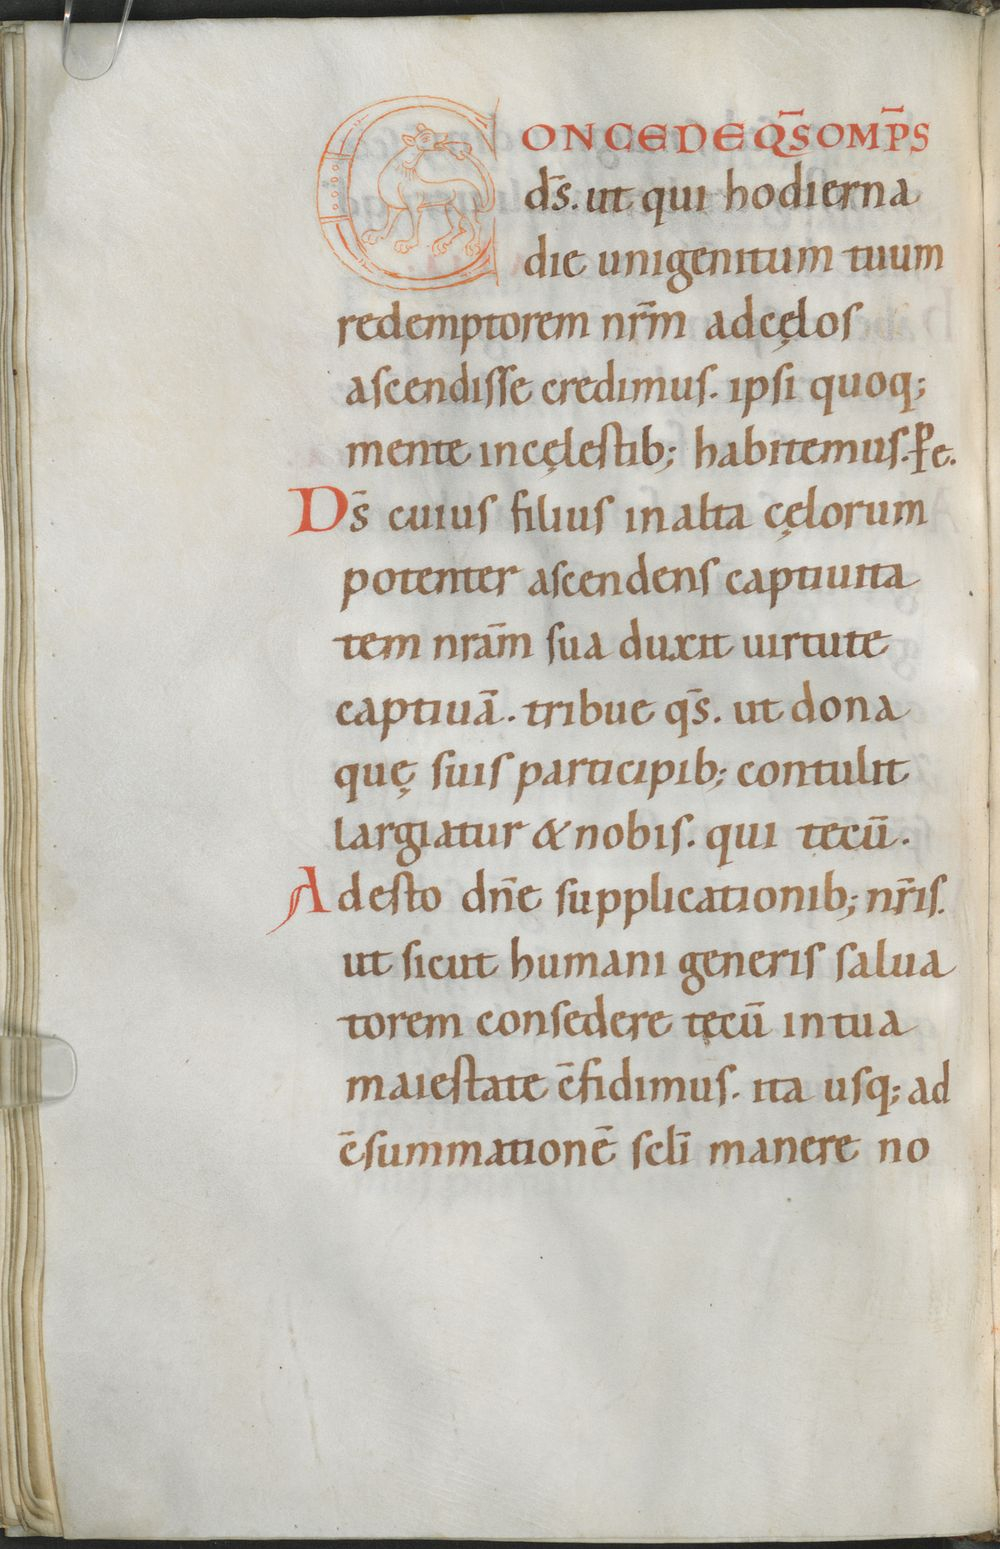 CONCEDE QS̄ OMP̄S
ds̄. ut qui hodierna
die unigenitum tuum
redemptorem nr̄m ad cęlos
ascendisse credimus. ipsi quoq;
mente in cęlestib; habitemus. P̱e.
Ds̄ cuius filius in alta cęlorum
potenter ascendens captiuita
tem nrām sua duxit uirtute
captiuā. tribue qs̄. ut dona
quę suis participib; contulit
largiatur & nobis. qui tecū.
Adesto dn̄e supplicationib; nr̄is.
ut sicut humani generis salua
torem consedere tecū in tua
maiestate c̄fidimus. ita usq; ad
c̄summationē sclī manere no